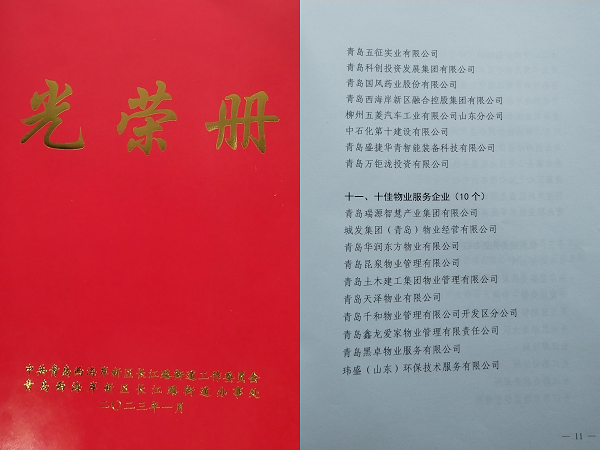 光荣册
中共青岛西海岸新区长江路街道工作委员会
青岛西海岸新区长江路街道办事处
二〇二三年一月
青岛五征实业有限公司
青岛科创投资发展集团有限公司
青岛国风药业股份有限公司
青岛西海岸新区融合控股集团有限公司
柳州五菱汽车工业有限公司山东分公司
中石化第十建设有限公司
青岛盛捷华青智能装备科技有限公司
青岛万钜泷投资有限公司
十一、十佳物业服务企业（10个）
青岛瑞源智慧产业集团有限公司
城发集团（青岛）物业经营有限公司
青岛华润东方物业有限公司
青岛昆泉物业管理有限公司
青岛土木建工集团物业管理有限公司
青岛天泽物业有限公司
青岛千和物业管理有限公司开发区分公司
青岛鑫龙爱家物业管理有限责任公司
青岛黑卓物业服务有限公司
玮盛（山东）环保技术服务有限公司
— 11 —